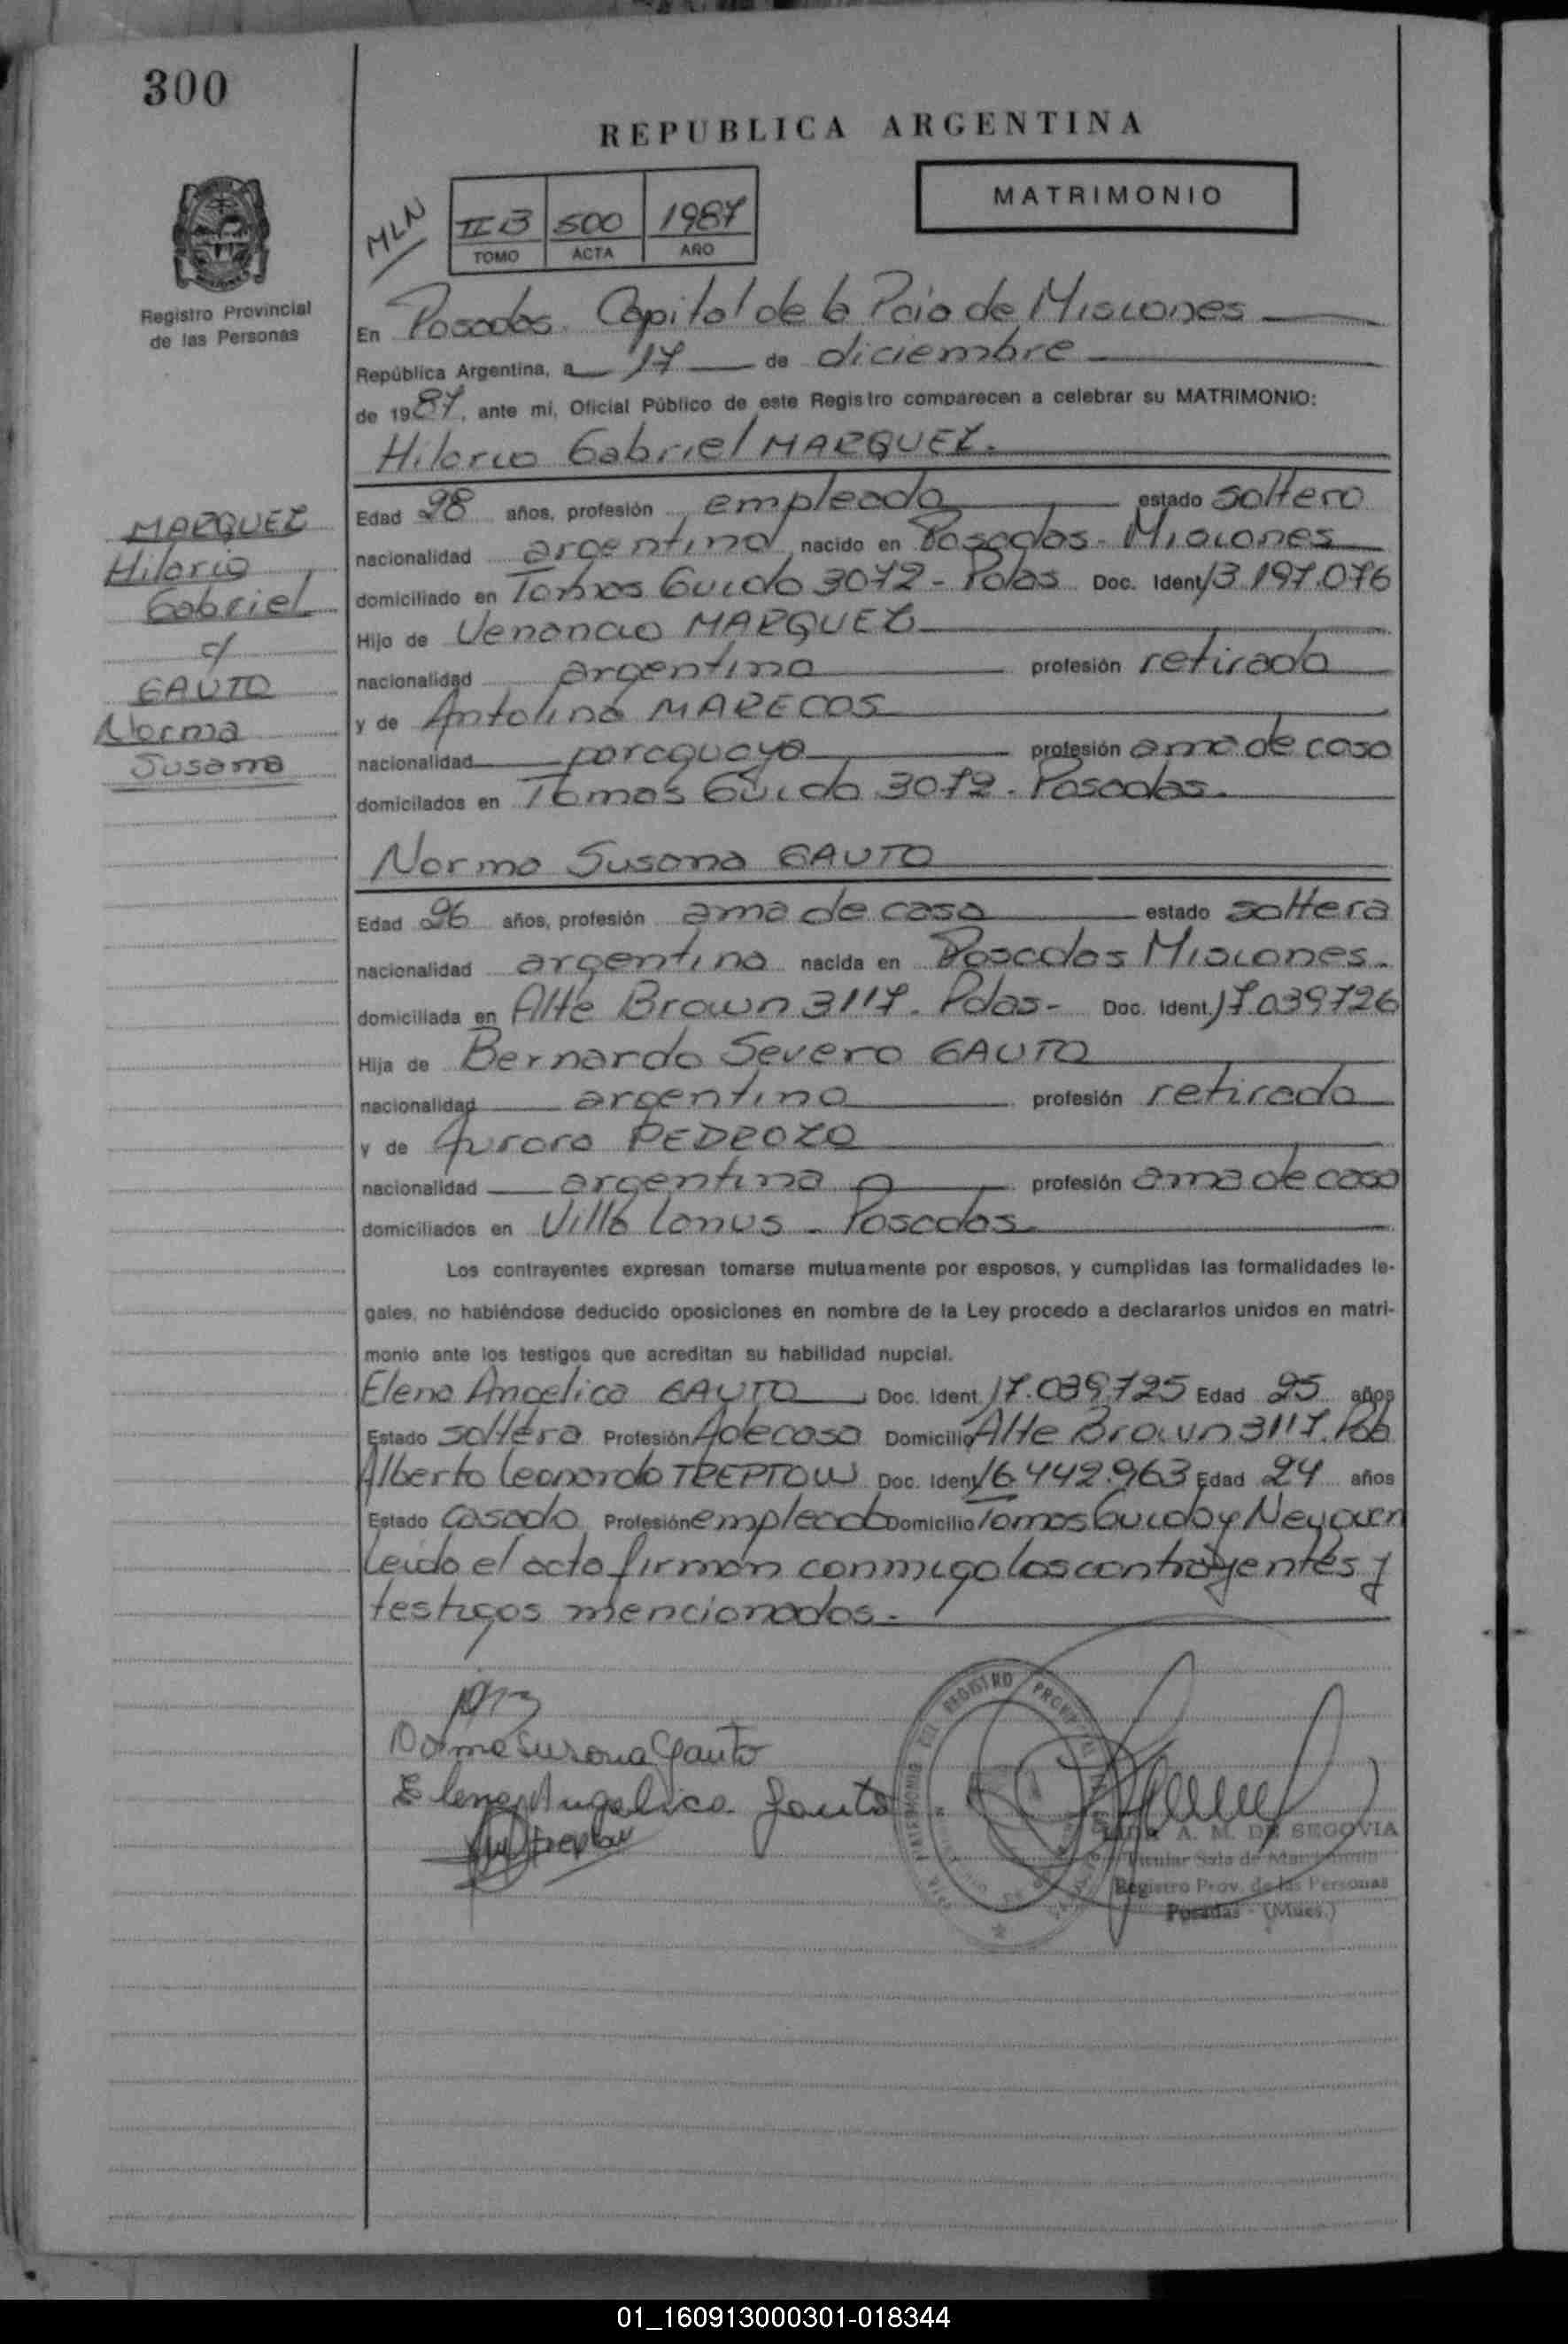 300
REPUBLICA ARGENTINA
MATRIMONIO
MLN
II B 500 1987
TOMO ACTA AÑO
Registro Provincial
de las Personas
En Posadas Capital de la Pcia de Misiones
República Argentina, a 17 de diciembre
de 1987, ante mí, Oficial Público de este Registro comparecen a celebrar su MATRIMONIO:
Hilario Gabriel MARQUEZ.
MARQUEZ
Hilario
Gabriel
c/
GAUTO
Norma
Susana
Edad 28 años, profesión empleado estado soltero
nacionalidad argentino nacido en Posadas - Misiones
domiciliado en Tomas Guido 3072 - Pdas Doc. Ident. 13.197.076
Hijo de Venancio MARQUEZ
nacionalidad argentino profesión retirado
y de Antolina MARECOS
nacionalidad paraguaya profesión ama de casa
domicilados en Tomas Guido 3072 - Posadas.
Norma Susana GAUTO
Edad 26 años, profesión ama de casa estado soltera
nacionalidad argentina nacida en Posadas Misiones.
domiciliada en Alte Brown 3117. Pdas- Doc. Ident. 17.039726
Hija de Bernardo Severo GAUTO
nacionalidad argentino profesión retirado
y de Aurora PEDROZO
nacionalidad argentina profesión ama de casa
domiciliados en Villa Lanus - Posadas
Los contrayentes expresan tomarse mutuamente por esposos, y cumplidas las formalidades le-
gales, no habiéndose deducido oposiciones en nombre de la Ley procedo a declararlos unidos en matri-
monio ante los testigos que acreditan su habilidad nupcial.
Elena Angelica GAUTO Doc. Ident. 17.039.725 Edad 25 años
Estado soltera Profesión Adecasa Domicilio Alte Brown 3117. Pdas
Alberto Leonardo TREPTOW Doc. Ident. 16.442.963 Edad 24 años
Estado casado Profesión empleado Domicilio Tomas Guido y Neuquen
Leido el acta firman conmigo los contrayentes y
testigos mencionados.-
Norma Susana Gauto
Elena Angelica Gauto
Treptow
REGISTRO PROVINCIAL
A. M. DE SEGOVIA
Titular Sala de Matrimonio
Registro Prov. de las Personas
Posadas - (Mnes.)
01_160913000301-018344